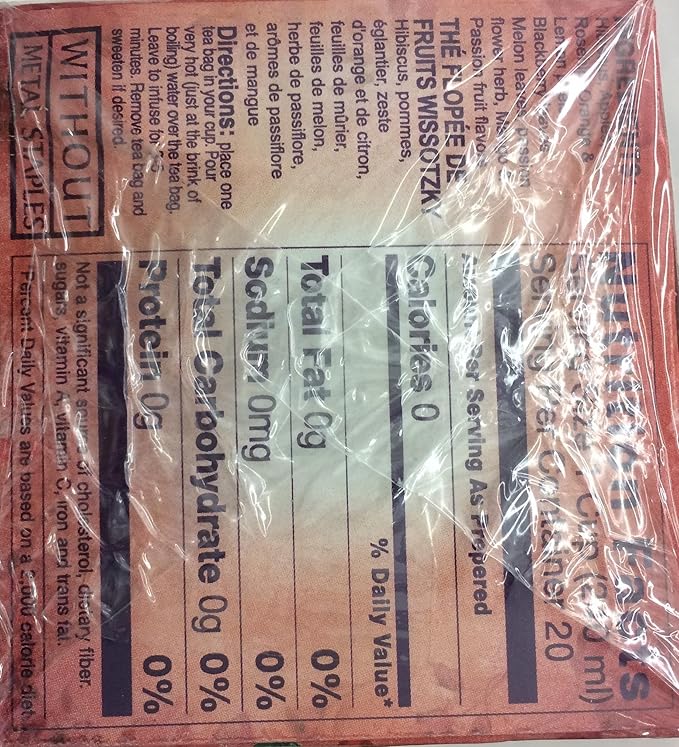 Hibiscus, Apple,
Orange &
Lemon
Blackberry
Melon leaves, passion
flower herb,
Passion fruit flavor
THÉ FLOPÉE DE
FRUITS WISSOTZKY
Hibiscus, pommes,
églantier, zeste
d'orange et de citron,
feuilles de mûrier,
feuilles de melon,
herbe de passiflore,
arômes de passiflore
et de mangue
Directions: place one
tea bag in your cup. Pour
very hot (just at the brink of
boiling) water over the tea bag.
Leave to infuse for
minutes. Remove tea bag and
sweeten if desired.
WITHOUT
METAL STAPLES
Nutrition Facts
Serving Size 1 Cup ml)
Serving Per Container 20
Amount Per Serving As Prepered
Calories 0
% Daily Value*
Total Fat 0g 0%
Sodium 0mg 0%
Total Carbohydrate 0g 0%
Protein 0g 0%
Not a significant source of cholesterol, dietary fiber.
sugars, vitamin A, vitamin C, iron and trans fat.
Percent Daily Values are based on a 2,000 calorie diet.